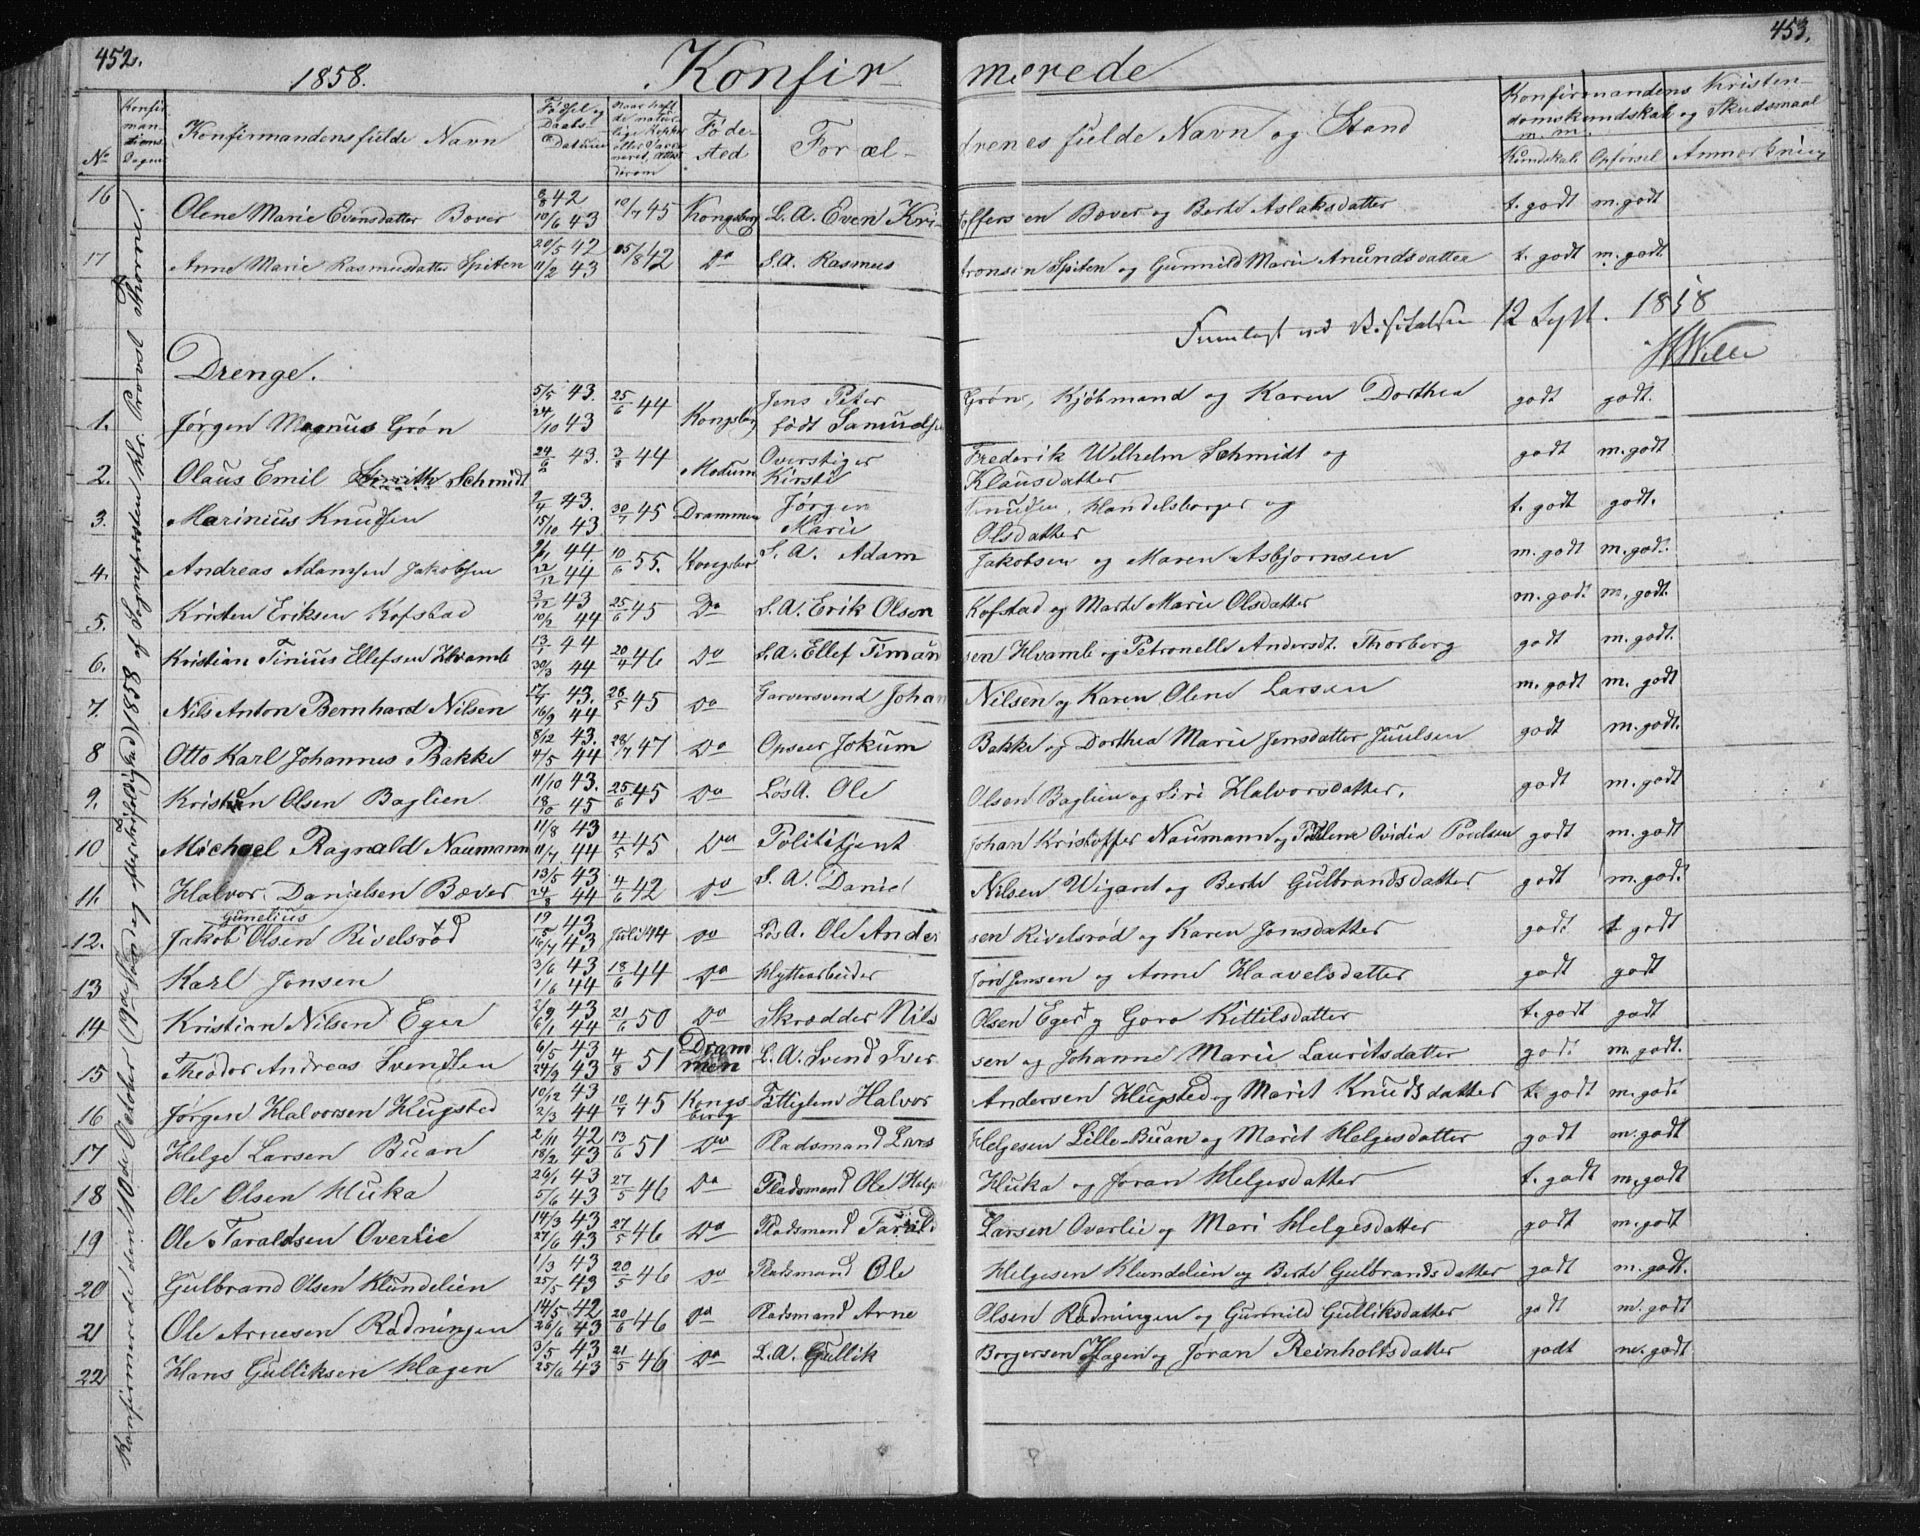 452. 453.
1858. Konfirmerede
No Konfirmandens fulde Navn Fødsel og Daabs Datum Fødested Forældrenes fulde Navn og Stand Konfirmandens Kristendomskundskab og Skudsmaal m. m.
Kundskab Opførsel Anmærkning
Konfirmerede den 10de October (19de Sønd. efter Trifoldighed) 1858 af Sognepresten Hr. Provst Thorne.
16 Olene Marie Evensdatter Bæver 8/3 42 10/6 43 10/7 45 Kongsberg L. A. Even Kristoffersen Bæver og Berte Aslaksdatter t. godt m. godt
17 Anne Marie Rasmusdatter Spiten 20/5 42 11/2 43 15/8 42 Do S. A. Rasmus Spiten og Gunnild Marie Anundsdatter t. godt m. godt
12 Sept. 1858
Drenge.
1. Jørgen Magnus Grøn 5/5 43. 24/10 43 25/6 44 Kongsberg Jens Peter Grøn, Kjøbmand og Karen Dorthea født Samuelsen godt godt.
2. Olaus Emil Schmidt 24/2 43. 3/8 44 Modum Overstiger Frederik Wilhelm Schmidt og Kirsti Klausdatter godt m. godt
3. Marinius Knudsen 2/4 43. 15/10 43 30/7 45 Drammen Jørgen Knudsen, Handelsborger og Marie Olsdatter t. godt godt.
4. Andreas Adamsen Jakobsen 44. 22/12 44 10/6 55. Kongsber S. A. Adam Jakobsen og Maren Asbjørnsen m. godt m. godt.
5. Kristen Eriksen Kofstad 3/12 43 10/2 44 25/6 45 Do S. A. Erik Olsen Kofstad og Marte Marie Olsdatter m. godt m. godt.
6. Kristian Tinius Ellefsen Hvamb 13/1 44 30/3 44 20/4 46 Do S. A. Ellef Timansen Hvamb og Petronelle Andersdt. Thorberg godt m. godt.
7. Nils Anton Bernhard Nilsen 43. 16/9 44 26/5 45 Do Garversvend Johan Nilsen og Karen Olene Larsen m. godt m. godt
8 Otto Karl Johannes Bakke 8/12 43. 4/5 44 28/7 47 Do Opseer Jokum Bakke og Dorthea Marie Jensdatter Juulsen godt m. godt.
9. Kristian Olsen Baglien 11/10 43. 45 25/6 45 Do LøsA. Ole Olsen Baglien og Siri Halvorsdatter. godt m. godt
10 Michael Ragnald Naumann 11/8 43 11/7. 44 4/5 45 Do Politibjent Johan Kristoffer Naumann og Ovidia Poulsen godt m. godt
11. Halvor Danielsen Bæver 13/5 43 24/8 44 4/6 42 Do S. A. Daniel Nilsen Wigaret og Berte Gulbrandsdatter godt m. godt
12. Jakob Gunelius Olsen Rivelsrød 19/5 43 16/7 43 Juli 44 Do LøsA. Ole Andersen Rivelsrød og Karen Jonsdatter godt t godt
13 Karl Jonsen 3/6 43 1/6 44 18/6 44 Do Hyttearbeider Jon Jensen og Anne Haavelsdatter godt godt
14 Kristian Nilsen Eger 2/9 43 6/1 44 21/6 50 Do Skrædder Nils Olsen Eger og Goro Kittilsdatter t. godt godt
15 Theodor Andreas Svendsen 6/5 43 24/9 43 4/8 51 Drammen L. A. Svend Iversen og Johanne Marie Lauritsdatter godt m. godt.
16 Jørgen Halvorsen Hugsted 10/12 43 2/3 44 10/7 45 Kongsberg Fattiglem Halvor Andersen Hugsted og Marit Knudsdatter t. godt m. godt
17 Helge Larsen Buan 2/11 42 18/2 43 13/6 51 Do Pladsmand Lars Helgesen Lille-Buan og Marit Helgesdatter godt m. godt
18 Ole Olsen Huka 26/1 43 5/6 43 27/5 46 Do Pladsmand Ole Helgesen Huka og Jøran Helgesdatter t. godt m. godt
19 Ole Taraldsen Overlie 14/3 43 27/6 43 27/5 46 Do Pladsmand Tarald Larsen Overlie og Mari Helgesdatter godt m. godt
20 Gulbrand Olsen Klundelien 1/3 43 25/5 43 20/5 46 Do Pladsmand Ole Helgesen Klundelien og Berte Gulbrandsdatter godt m. godt.
21 Ole Arnesen Rådningen 14/5 42 26/6 43 20/6 46 Do Pladsmand Arne Olsen Rådningen og Gunnild Gulliksdatter godt m. godt
22 Hans Gulliksen Hagen 3/5 43 25/6 43 21/5 46 Do L. A. Gullik Borgersen Hagen og Jøran Reinholtsdatter godt m. godt